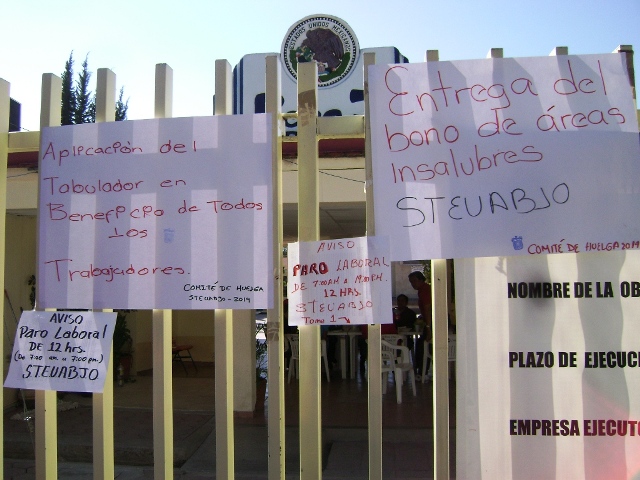 ESTADOS UNIDOS MEXICANOS
Aplicación del
Tabulador en
Beneficio de Todos
los
Trabajadores.
COMITÉ DE HUELGA
STEUABJO - 2019
Entrega del
bono de áreas
insalubres
STEUABJO
COMITÉ DE HUELGA 2019
AVISO
PARO LABORAL
DE 7:00 A.M. A 19:00 P.M.
12 HRS.
STEUABJO
Tomo 1
AVISO
Paro Laboral
DE 12 hrs.
(De 7:00 am a 7:00 pm)
STEUABJO
NOMBRE DE LA OB
PLAZO DE EJECUC
EMPRESA EJECUTO